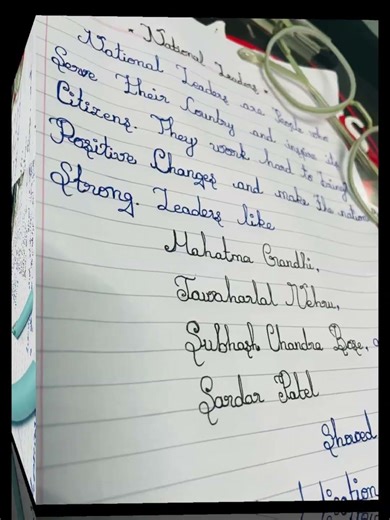 • National Leaders •
National Leaders are People who
Serve Their Country and inspire its
Citizens. They work hard to bring
Positive Changes and make The nation
Strong. Leaders like
Mahatma Grandhi,
Jawaharlal Nehru,
Subhash Chandra Bose,
Sardar Patel
Showed